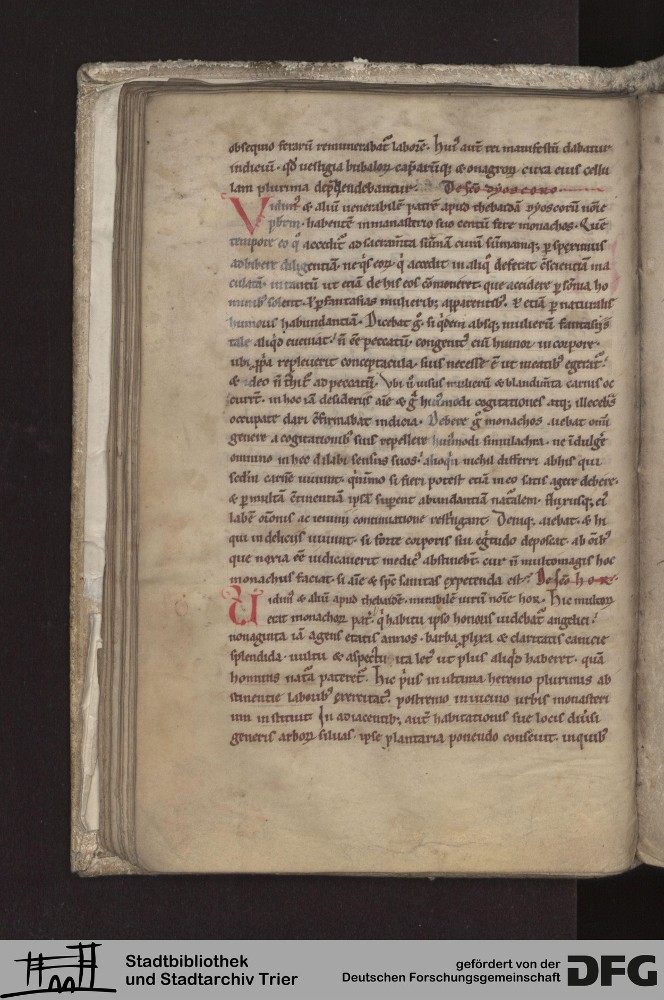 obsequio ferarū remunerabat᷑ laborē. Huiꝰ aut̄ rei manifestū dabatur
indiciū. qd̓ vestigia bubaloꝝ capraꝝq; & onagroꝝ circa eius cellu
lam plurima dep̄hendebantur. De sc̄o dyoscoro
Vidimꝰ & aliū venerabilē patrē apud thebaidā dyoscorū noīe
p̄br̄m. habentē in monasterio suo centū fere monachos. Quē
tempore eo q̊ accedit᷑ ad sacram̄ta sūmā curā sūmamq; ꝑspeximus
adhibere diligentiā. ne q̓s eoꝝ q̓ accedit in aliq̊ deferat c̄scientiā ma
culatā. intantū ut etiā de his eos cōmoneret. que accidere ꝑ somnia ho
minibꝰ solent. l̓ ꝑ fantasias mulierib; apparentes. l̓ etiā ꝑ naturalis
humoris habundantiā. Dicebat g̊. si q̓dem absq; mulierū fantasijs
tale aliq̊d eveniat. n̄ eē peccatū. congeritꝰ eni humor in corpore.
ubi ip̄a repleverit conceptacula. suis necesse ē ut meatibꝰ egerat᷑.
& ideo n̄ t̄hit᷑ ad peccatū. Ubi ū visus mulierū & blandim̄ta carnis oc
currt̄. in hoc iā desiderijs aīe & g̊ huiꝰmodi cogitationes atq; illecebris
occupate dari c̄firmabat indicia. Debere g̊ monachos aiebat om̄i
genere a cogitationibꝰ suis repellere huiꝰmodi simulachra. ne īdulg̊t
omnino in hec dilabi sensus suos. alioq̓n nichil differri ab his qui
sed̄m carnē vivunt. quinimo si fieri potest etiā in eo satis agere debere.
& ꝑ multā c̄tinentiā ipsā suꝑent abundantiā nat̄alem. flixusq; eiꝰ
labē or̄onis ac ieiunij continuatione restringant. Deniq; aiebat. & hi
qui in delicijs vivunt. si forte corporis sui eg̓tudo deposcat. ab om̄ibꝰ
que noxia eē iudicaverit medicꝰ abstinebt̄. cur n̄ multo magis hoc
monachus faciat. si aīe & sp̄c sanitas expetenda est. De sc̄o hor
Vidimꝰ & aliū apud thebaidē. mirabilē virū noīe hor. Hic multoꝝ
erat monachoꝝ pat᷑. q̓ habitu ipso honoris videbat᷑ angelici.
nonaginta iā agens etatis annos. barba ꝓlixa & claritatis canicie
splendida. vultu & aspectu. ita letꝰ ut plus aliq̊d haberet. quā
hominis nat᷑a pateret᷑. Hic p̓us in ultima heremo plurimis ab
stinentie laboribꝰ exercitatꝰ. postremo in vicino urbis monasteri
um instituit. In adiacentib; aut̄ habitationis sue locis div̓si
generis arboꝝ silvas. ipse plantaria ponendo consevit. in quibꝰ
Stadtbibliothek
und Stadtarchiv Trier
gefördert von der
Deutschen Forschungsgemeinschaft
DFG